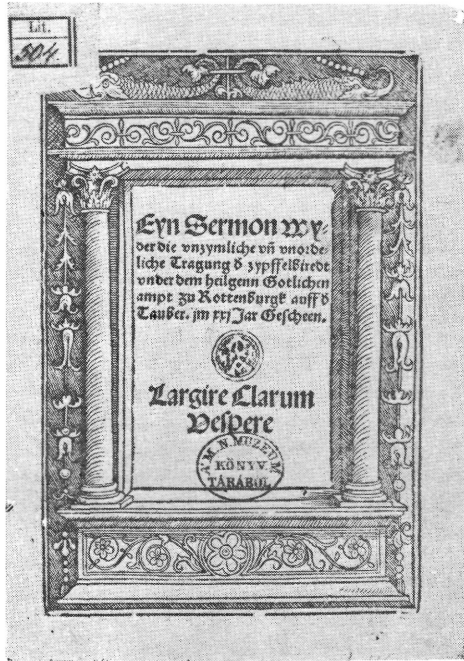 Lit.
504.
Eyn Sermon wy-
der die vnzymliche vñ vnorde-
liche Tragung d zypffelbiredt
vnder dem heilgenn Gotlichen
ampt zu Rottenburgk auff d
Tauber. jm xxj Jar Gescheen.
Largire Clarum
Vespere
A M. N. MUZEUM
KÖNYV-
TÁRÁBÓL